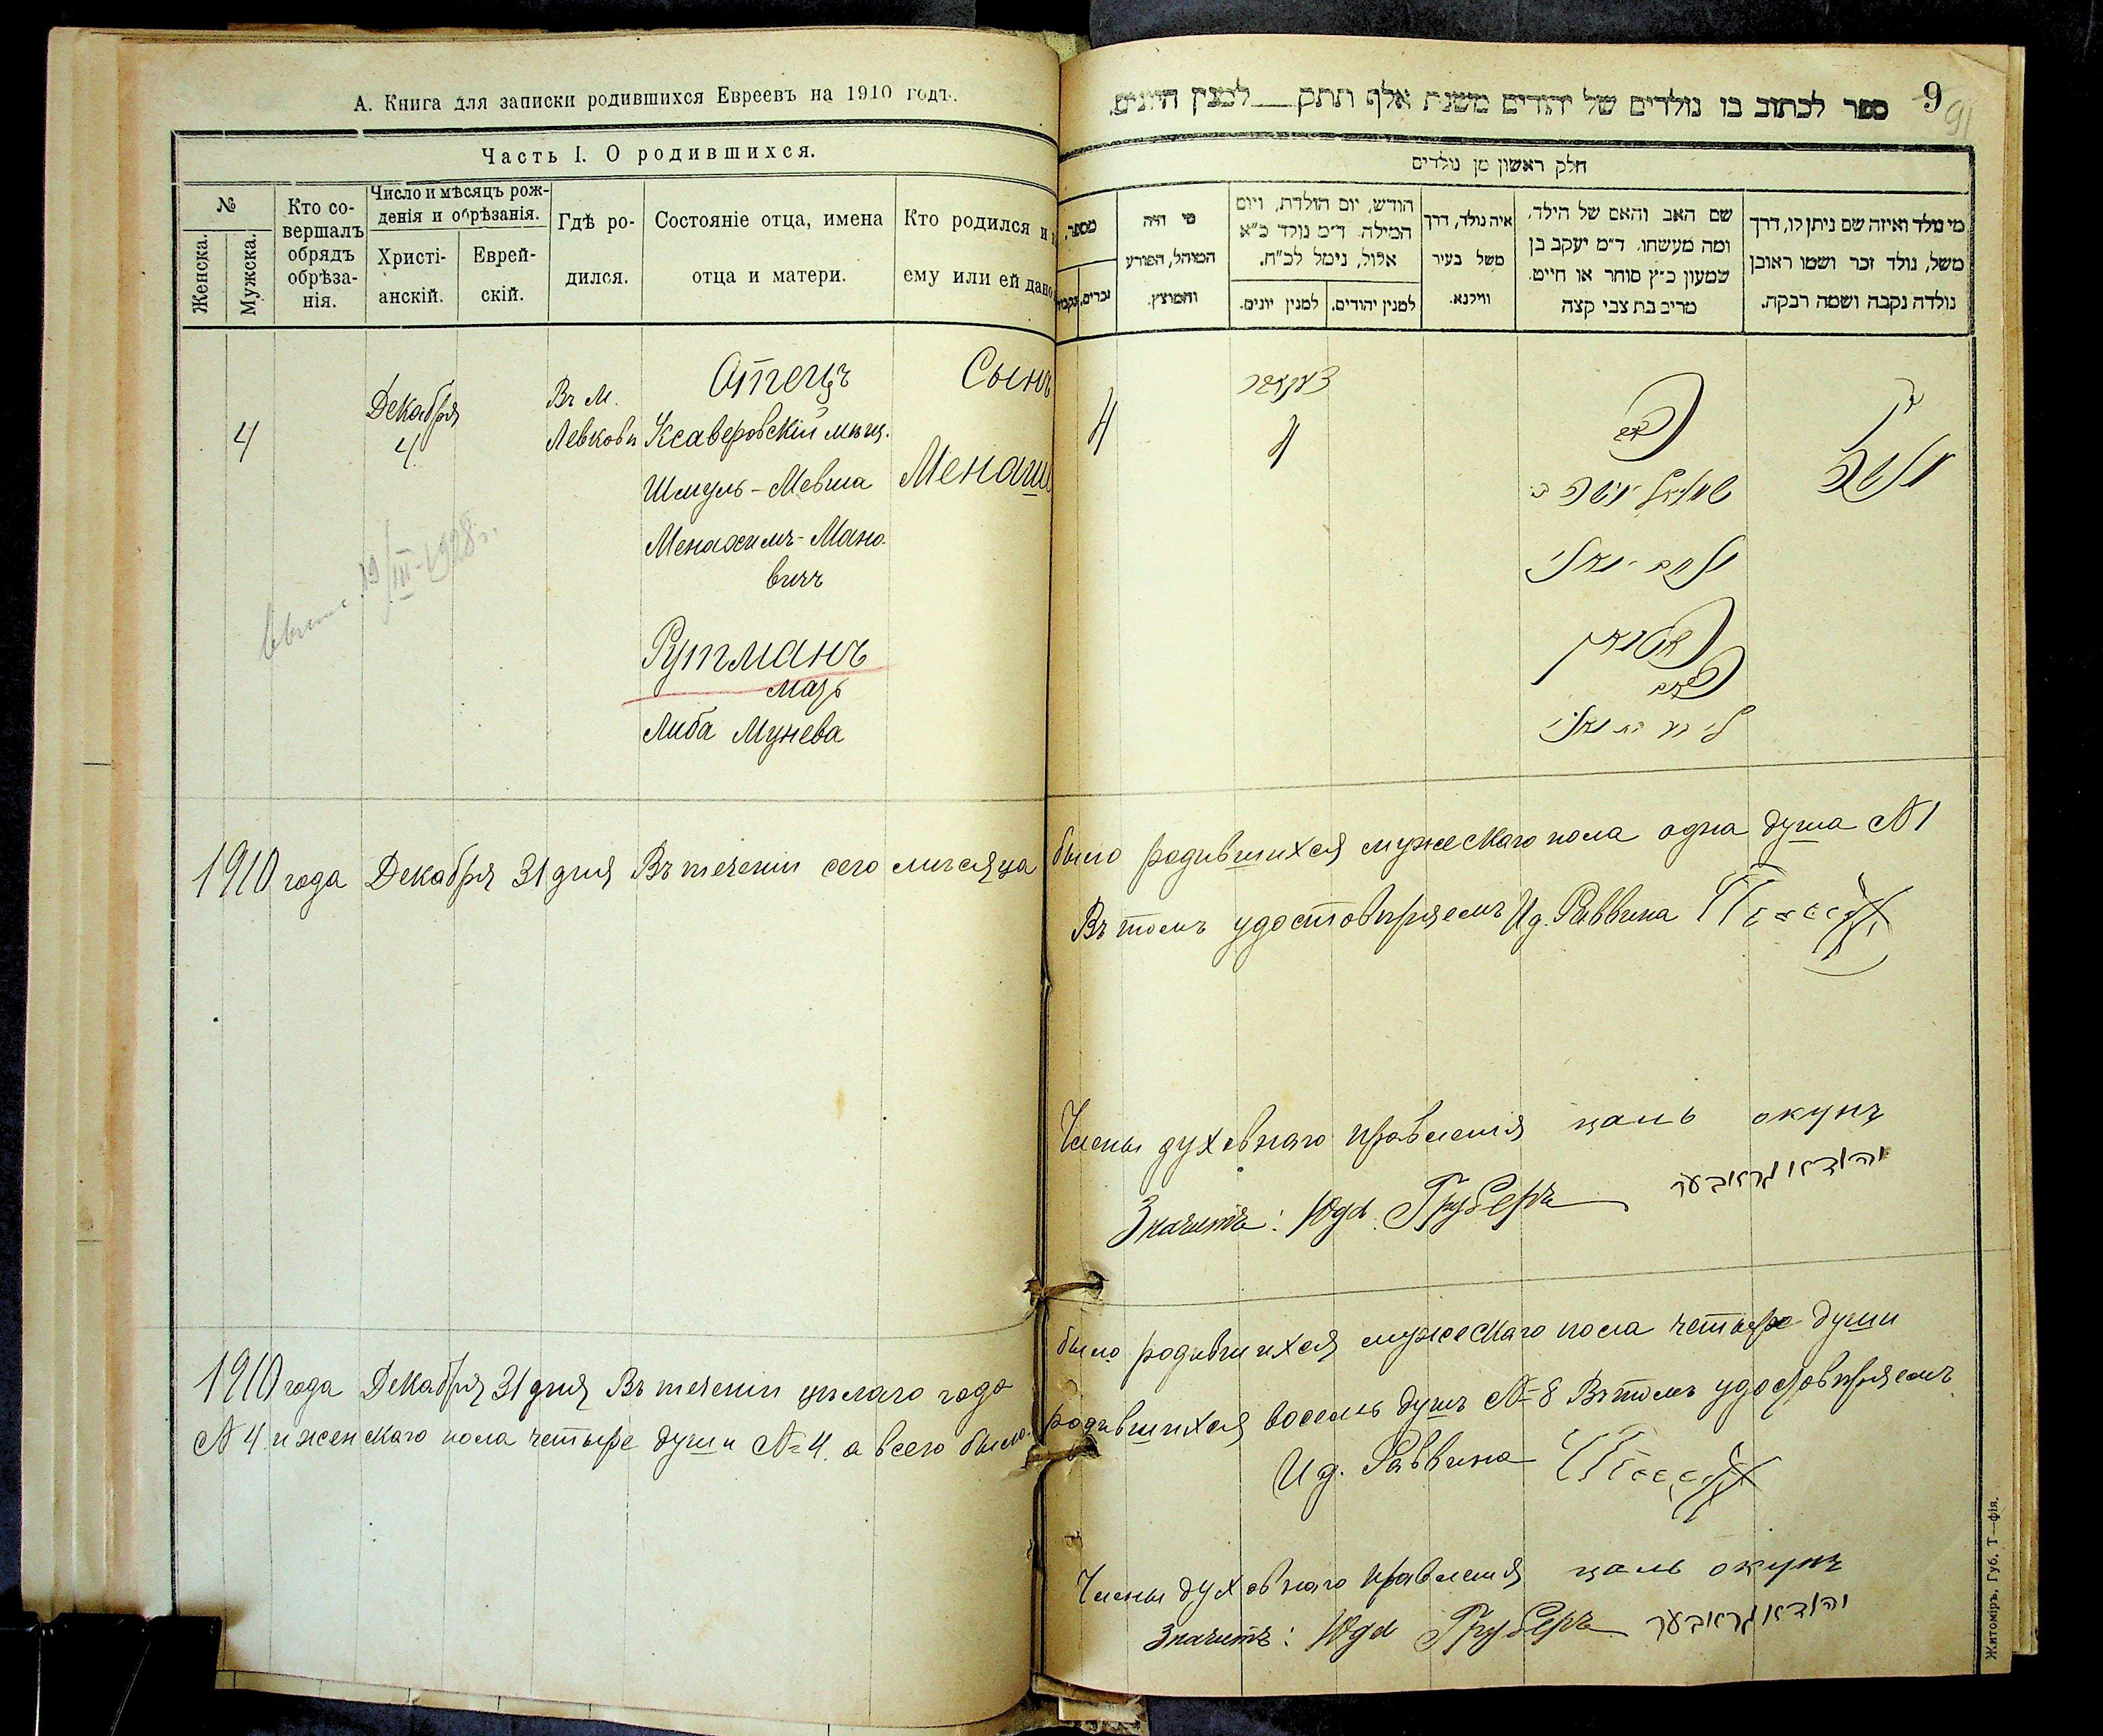 А. Книга для записки родившихся Евреевъ на 1910 годъ.
Часть I. О родившихся.
№
Женска.
Мужска.
Кто со-
вершалъ
обрядъ
обрѣза-
нія.
Число и мѣсяцъ рож-
денія и обрѣзанія.
Христі-
анскій.
Еврей-
скій.
Гдѣ ро-
дился.
Состояніе отца, имена
отца и матери.
Кто родился и
ему или ей дано
4
Декабря
4
Въ м.
Левкови
Отецъ
Ксаверовскій мѣщ.
Шмуль-Мевша
Менахимъ-Мано-
вичъ
Рутманъ
мать
Либа Мунева
Сынъ
Менаше
19/III-1928г.
1910 года Декабря 31 дня Въ теченіи сего мѣсяца
1910 года Декабря 31 дня Въ теченіи цѣлаго года
№ 4 и женскаго пола четыре души № 4 а всего было
ספר לכתוב בו נולדים של יהודים משנת אלף תתק___למנין היונים.
9
91
חלק ראשון מן נולדים
מי נולד ואיזה שם ניתן לו, דרך
משל, נולד זכר ושמו ראובן
נולדה נקבה ושמה רבקה.
שם האב והאם של הילד,
ומה מעשהו. ד״מ יעקב בן
שמעון כ״ץ סוחר או חייט.
מרים בת צבי קצה
איה נולד, דרך
משל בעיר
ווילנא.
הודש, יום הולדת, ויום
המילה. ד״מ נולד כ״א
אלול, נימל לכ״ח.
למנין יהודים.
למנין יונים.
מי היה
המוהל, הפורע
והמוצץ.
מספר,
זכרים,
נקבות
4
4
было родившихся мужескаго пола одна душа № 1
Въ томъ удостовѣряемъ И д. Раввина
Члены духовнаго правленія цаль окунъ
Значитъ: Юда Груберъ יהודא גראבער
было родившихся мужескаго пола четыре души
родившихся восемь душъ № 8 Въ томъ удостовѣряемъ
И д. Раввина
Члены духовнаго правленія цаль окунъ
Значитъ: Юда Груберъ יהודא גראבער
Житоміръ, Губ. Т—фія.